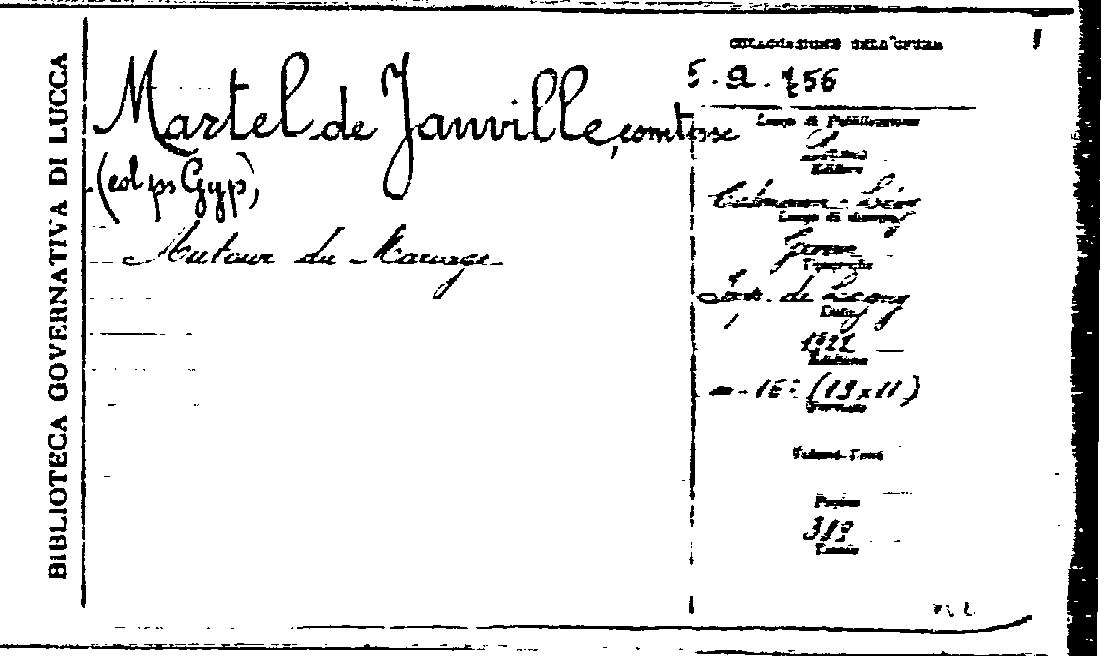 BIBLIOTECA GOVERNATIVA DI LUCCA
Martel de Janville, comtesse
(col ps Gyp)
Autour du Mariage
COLLOCAZIONE DELL'OPERA
5. a. 756
Luogo di Pubblicazione
Editore
Calmann-Lévy
Luogo di stampa
Tipografia
Imp. de Lagny
Data
Edizione
in-16° (19x11)
Formato
Volume-Tomo
Pagine
319
Tavole